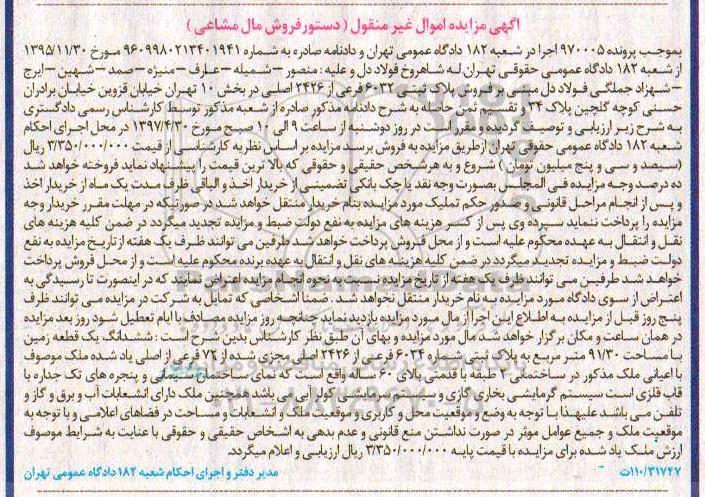 آگهی مزایده اموال غیر منقول ( دستورفروش مال مشاعی )
بموجب پرونده ۹۷۰۰۰۵ اجرا در شعبه ۱۸۲ دادگاه عمومی تهران و دادنامه صادره به شماره ۹۶۰۹۹۸۰۲۱۳۴۰۱۹۴۱ مورخ ۱۳۹۵/۱۱/۳۰
از شعبه ۱۸۲ دادگاه عمومی حقوقی تهران له شاهروخ فولاد دل و علیه : منصور – شمیله – عارف – منیژه – صمد – شهین – ایرج
– شهرزاد جملگی فولاد دل مبنی بر فروش پلاک ثبتی ۶۰۳۲ فرعی از ۲۴۲۶ اصلی در بخش ۱۰ تهران خیابان قزوین خیابان برادران
حسنی کوچه گلچین پلاک ۳۴ و تقسیم ثمن حاصله به شرح دادنامه مذکور صادره از شعبه مذکور توسط کارشناس رسمی دادگستری
به شرح زیر ارزیابی و توصیف گردیده و مقرر است در روز دوشنبه از ساعت ۹ الی ۱۰ صبح مورخ ۱۳۹۷/۴/۳۰ در محل اجرای احکام
شعبه ۱۸۲ دادگاه عمومی حقوقی تهران ازطریق مزایده به فروش برسد مزایده بر اساس نظریه کارشناسی از قیمت ۳/۳۵۰/۰۰۰/۰۰۰ ریال
(سیصد و سی و پنج میلیون تومان ) شروع و به هرشخص حقیقی و حقوقی که بالا ترین قیمت را پیشنهاد نماید فروخته خواهد شد
ده درصد وجه مزایده فی المجلس بصورت وجه نقد یا چک بانکی تضمینی از خریدار اخذ و الباقی ظرف مدت یک ماه از خریدار اخذ
و پس از انجام مراحل قانونی و صدور حکم تملیک مورد مزایده بنام خریدار منتقل خواهد شد در صورتیکه در مهلت مقرر خریدار وجه
مزایده را پرداخت ننماید سپرده وی پس از کسر هزینه های مزایده به نفع دولت ضبط و مزایده تجدید میگردد در ضمن کلیه هزینه های
نقل و انتقال به عهده محکوم علیه است و از محل فروش پرداخت خواهد شد طرفین می توانند ظرف یک هفته از تاریخ مزایده به نفع
دولت ضبط و مزایده تجدید میگردد در ضمن کلیه هزینه های نقل و انتقال به عهده برنده محکوم علیه است و از محل فروش پرداخت
خواهد شد طرفین می توانند ظرف یک هفته از تاریخ مزایده نسبت به نحوه انجام مزایده اعتراض نمایند که در اینصورت تا رسیدگی به
اعتراض از سوی دادگاه مورد مزایده به نام خریدار منتقل نخواهد شد . ضمنا اشخاصی که تمایل به شرکت در مزایده می توانند ظرف
پنج روز قبل از مزایده به اطلاع این اجرا از مال مورد مزایده بازدید نماید چنانچه روز مزایده مصادف با ایام تعطیل شود روز بعد مزایده
در همان ساعت و مکان برگزار خواهد شد مال مورد مزایده و بهای آن طبق نظر کارشناس بدین شرح است : ششدانگ یک قطعه زمین
با مساحت ۹۱/۳۰ متر مربع به پلاک ثبتی شماره ۶۰۳۴ فرعی از ۲۴۲۶ اصلی مجزی شده از ۷۲ فرعی از اصلی یاد شده ملک موصوف
با اعیانی ملک مذکور در ساختمانی ۲ طبقه با قدمتی بالای ۶۰ ساله واقع است که نمای ساختمان سیمانی و پنجره های تک جداره با
قاب فلزی است سیستم گرمایشی بخاری گازی و سیستم سرمایشی کولر آبی می باشد همچنین ملک دارای انشعابات آب و برق و گاز و
تلفن می باشد علیهذا با توجه به وضع و موقعیت محل و کاربری و موقعیت ملک و انشعابات و مساحت در فضاهای اعلامی و با توجه به
موقعیت ملک و جمیع عوامل موثر در صورت نداشتن منع قانونی و عدم بدهی به اشخاص حقیقی و حقوقی با عنایت به شرایط موصوف
ارزش ملک یاد شده برای مزایده با قیمت پایه ۳/۳۵۰/۰۰۰/۰۰۰ ریال ارزیابی و اعلام میگردد.
۱۱۰/۳۱۷۴۷ت مدیر دفتر و اجرای احکام شعبه ۱۸۲ دادگاه عمومی تهران